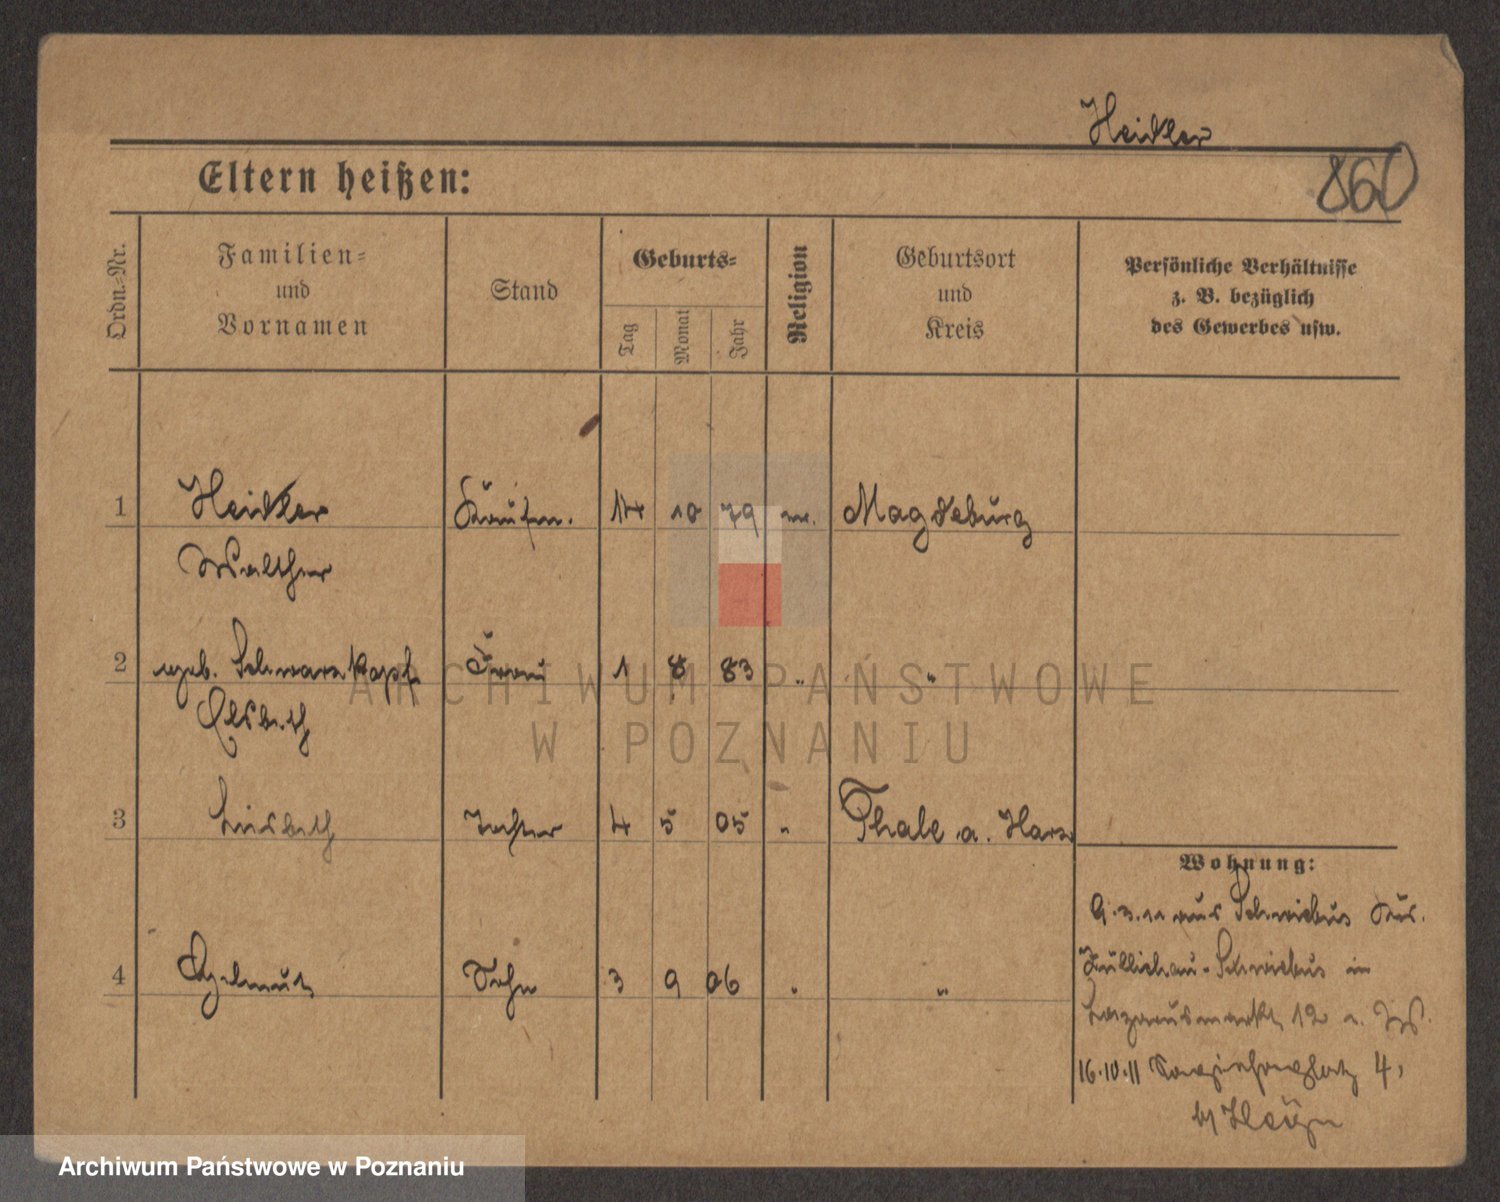 Heidler
860
Eltern heißen:
Ordn.=Nr.
Familien=
und
Vornamen
Stand
Geburts=
Tag
Monat
Jahr
Religion
Geburtsort
und
Kreis
Persönliche Verhältnisse
z. B. bezüglich
des Gewerbes usw.
1 Heidler Kaufm. 14 10 79 ev. Magdeburg
Walther
2 geb. Schwarzkopf Frau 1 8 83 " "
Elsbeth
3 Lisbeth Tochter 4 5 05 " Thale a. Harz
4 Helmut Sohn 3 9 06 " "
Wohnung:
9.3.11 aus Schwiebus Krs.
Züllichau-Schwiebus in
Lazarusmarkt 12
16.10.11 4,
ARCHIWUM PAŃSTWOWE
W POZNANIU
Archiwum Państwowe w Poznaniu